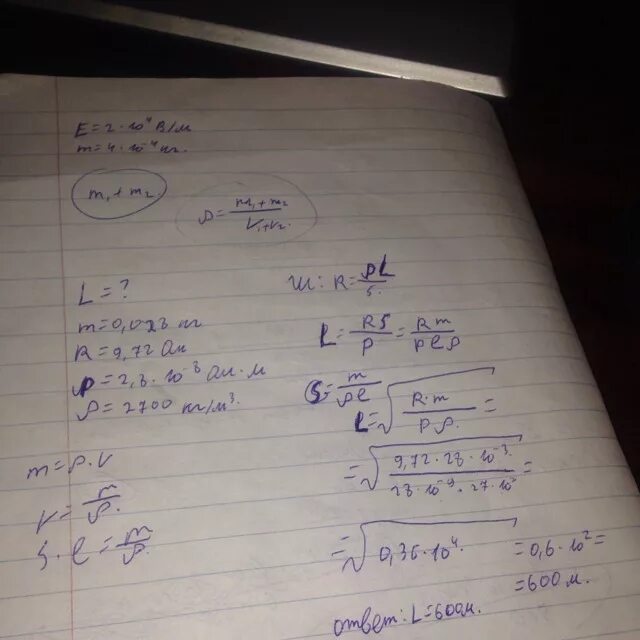 E = 2 · 10⁴ В/м
m = 4 · 10⁻⁴ кг.
m₁ + m₂
ρ = (m₁ + m₂)/(V₁ + V₂.)
L = ?
m = 0,023 кг
R = 9,72 Ом
ρ = 2,8 · 10⁻⁸ Ом · м
ρ = 2700 кг/м³.
m = ρ · V
V = m/ρ.
S · l = m/ρ
Ш: R = ρL/S.
L = RS/ρ = Rm/ρlρ
S = m/ρl
L = √(R · m/ρ · ρ.) =
= √(9,72 · 28 · 10⁻³/28 · 10⁻⁹ · 27 · 10²) =
= √(0,36 · 10⁴.) = 0,6 · 10² =
= 600 м.
ответ: L = 600м.